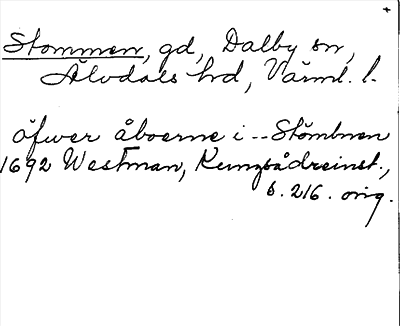 Stommen, gd, Dalby sn,
Älvdals hrd, Värml. l.
öfwer åboerne i -- Stömbnen
1692 Westman, Kungsådreinst.,
s. 216. orig.